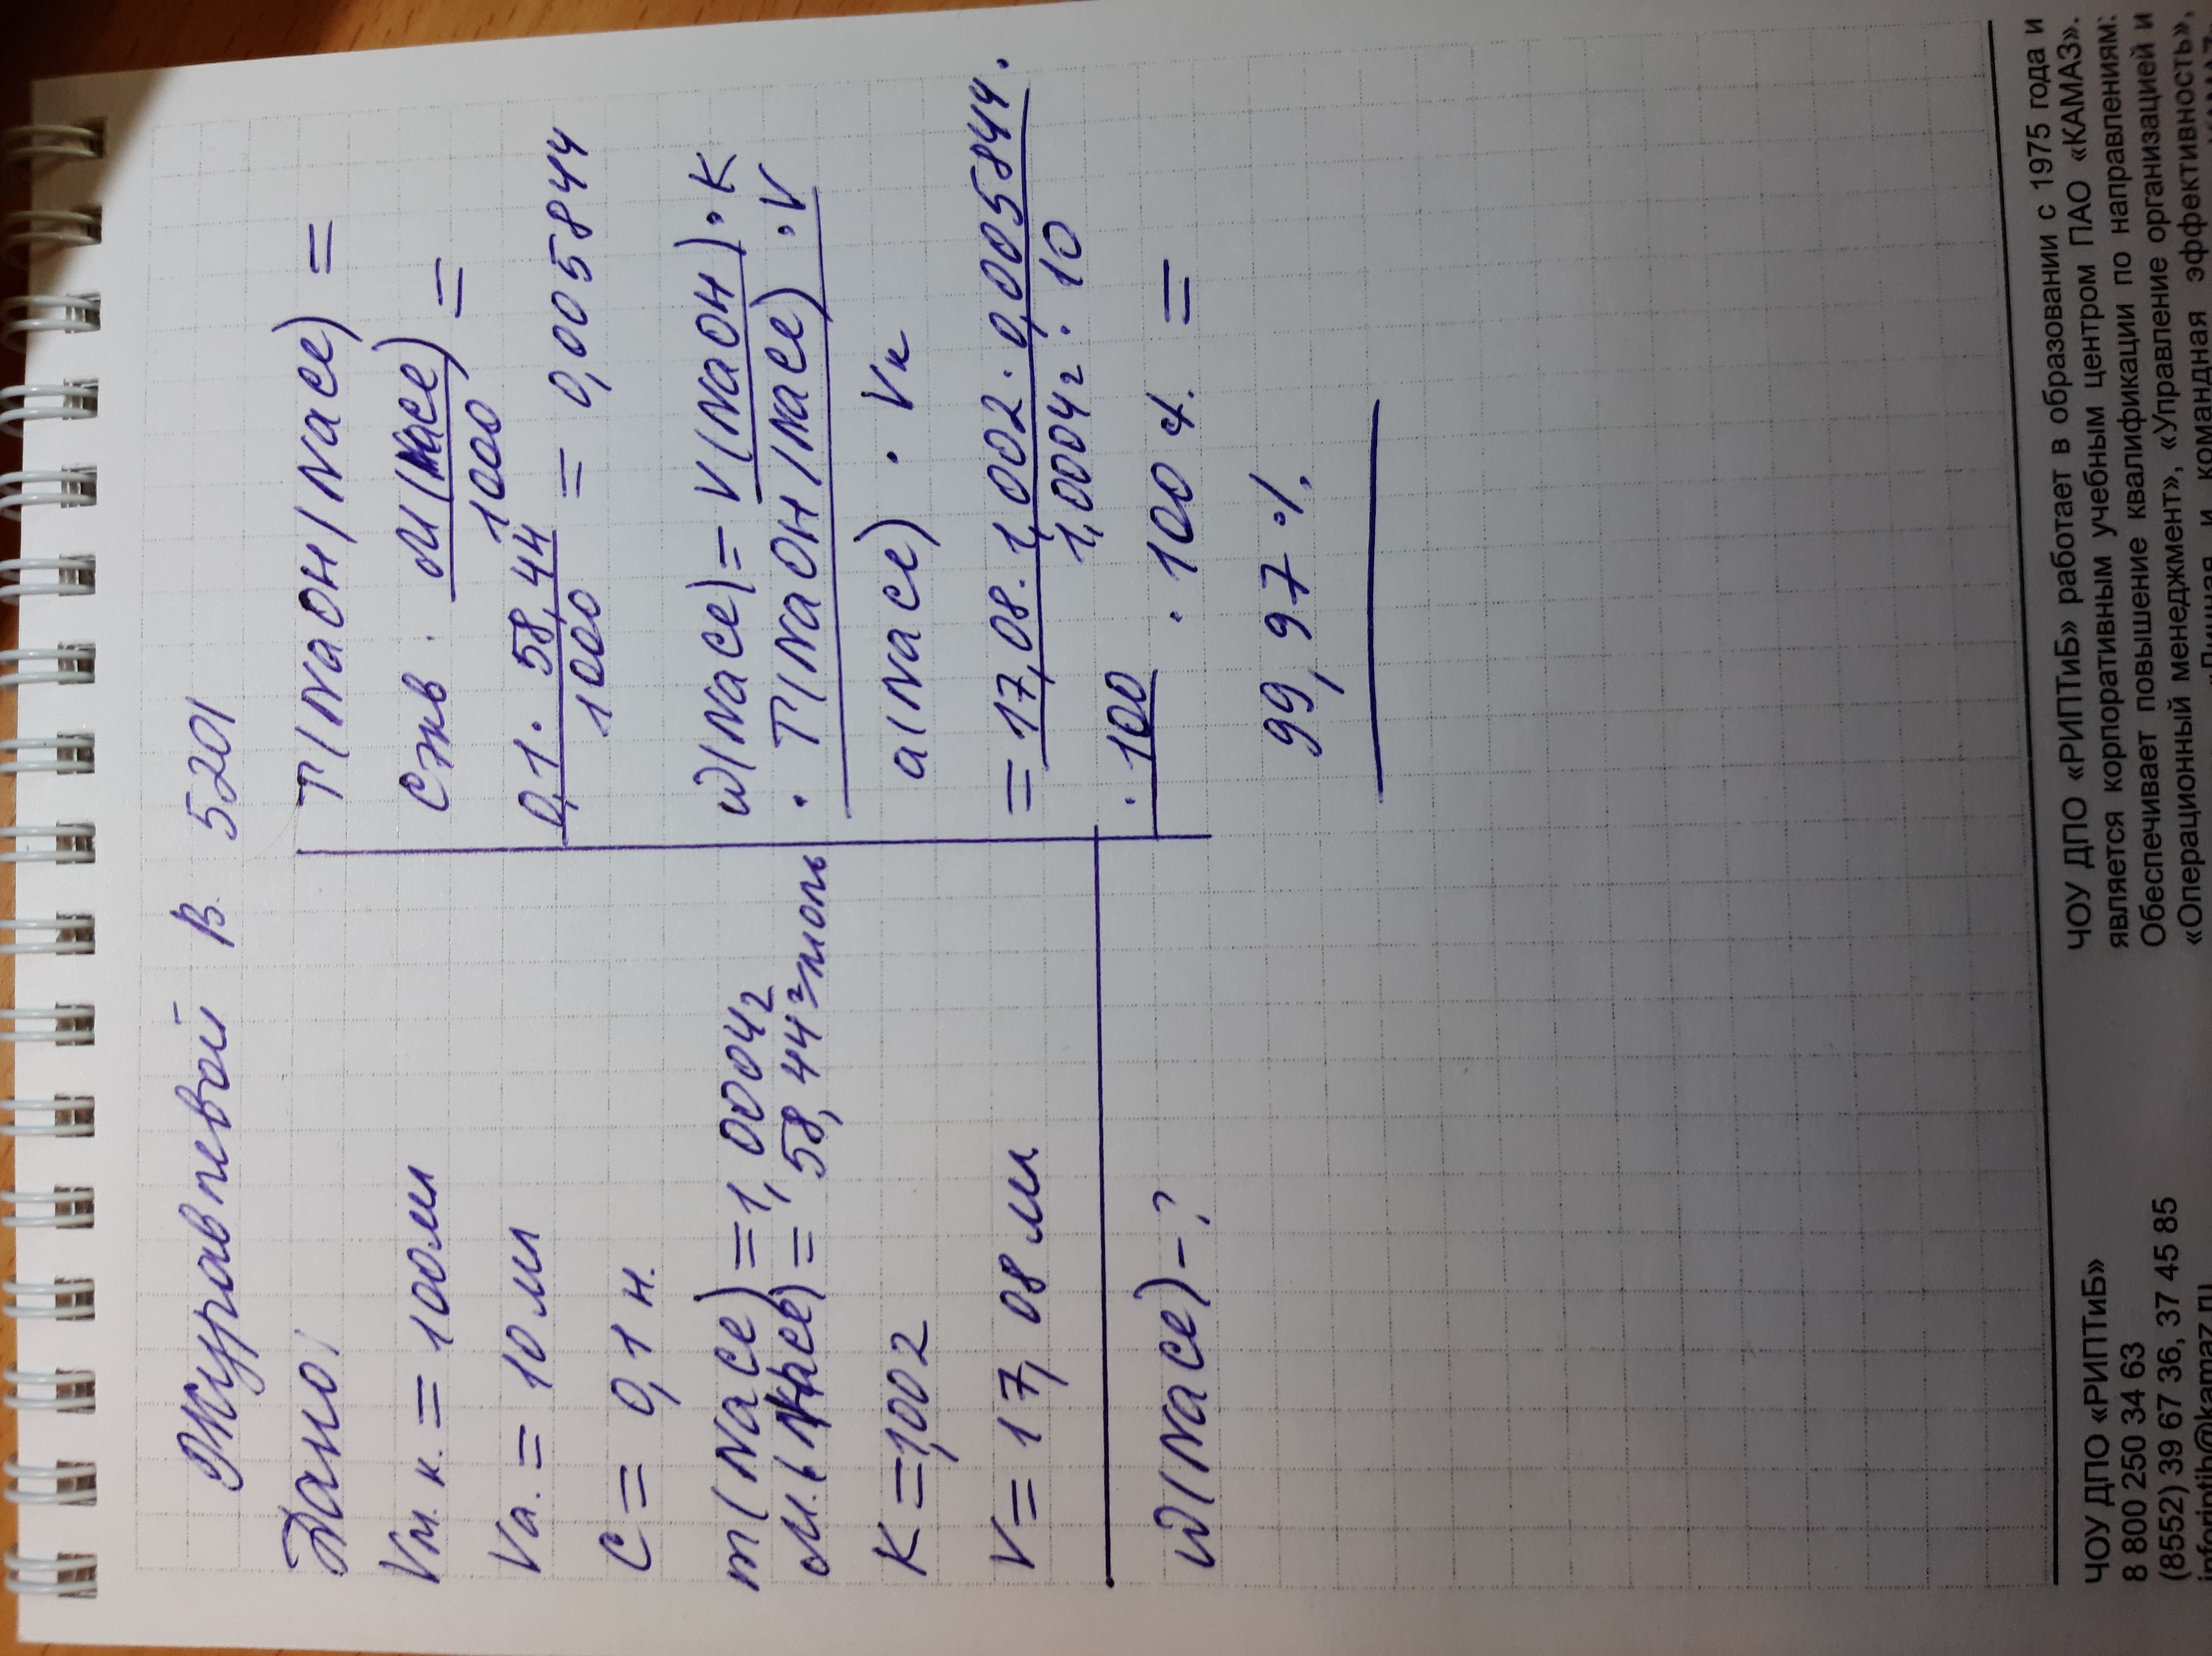 Журавлевой В. 5201
Дано:
Vм.к. = 100мл
Va. = 10 мл
C = 0,1 н.
m(NaCl) = 1,0004г
М.(NaCl) = 58,44 г/моль
K = 1,002
V = 17,08 мл
W(NaCl) - ?
T(NaOH/NaCl) =
Cэкв. · M(NaCl) =
1000
0,1 · 58,44 = 0,005844
1000
W(NaCl) = V(NaOH) · K
· T(NaOH/NaCl) · V
a(NaCl) · Vк
= 17,08 · 1,002 · 0,005844 ·
1,0004г · 10
· 100 · 100 %. =
99,97 %.
ЧОУ ДПО «РИПТиБ»
8 800 250 34 63
(8552) 39 67 36, 37 45 85
inforiptib@kamaz.ru
ЧОУ ДПО «РИПТиБ» работает в образовании с 1975 года и
является корпоративным учебным центром ПАО «КАМАЗ».
Обеспечивает повышение квалификации по направлениям:
«Операционный менеджмент», «Управление организацией и
«Личная и командная эффективность»,